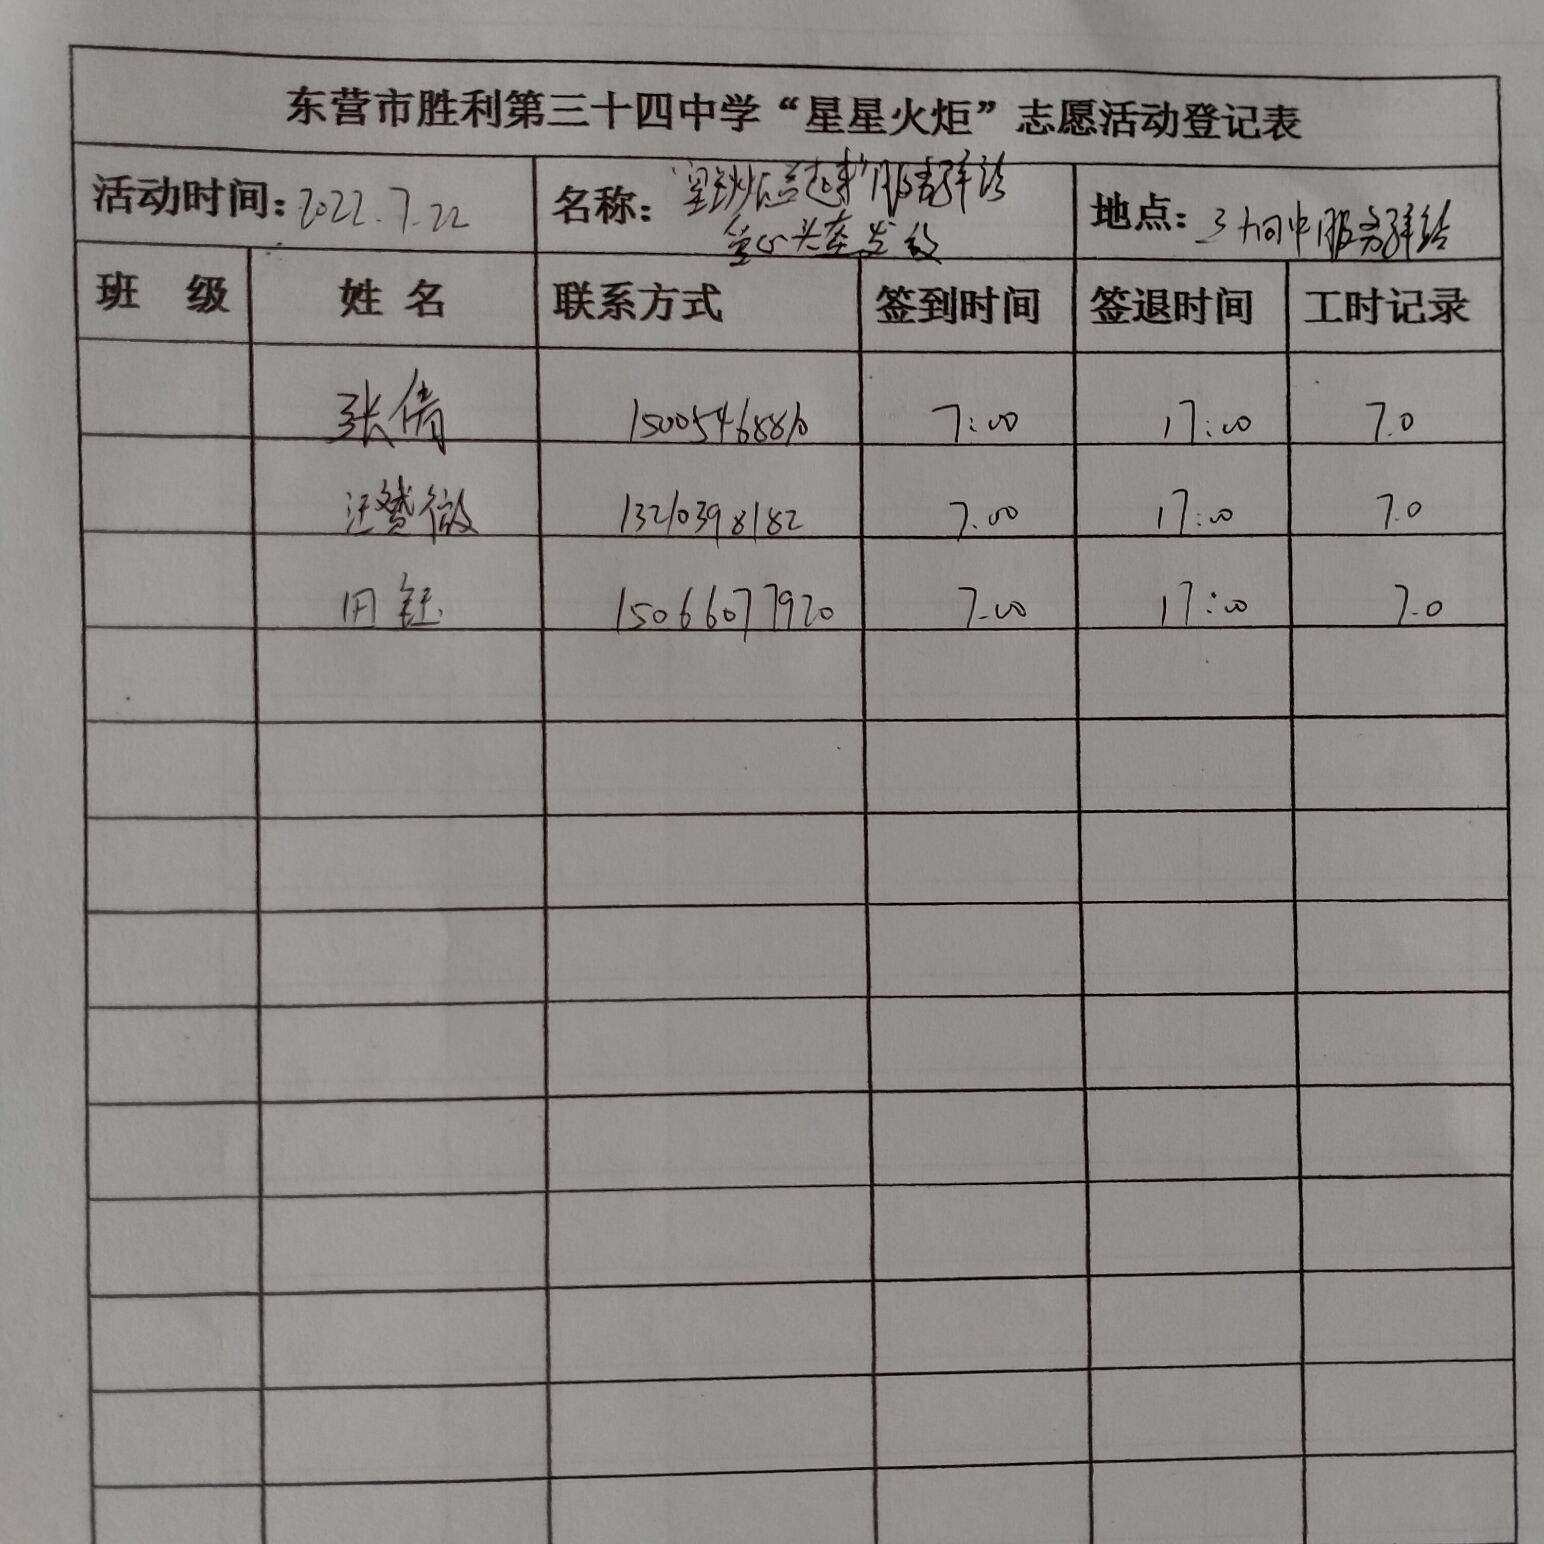 东营市胜利第三十四中学“星星火炬”志愿活动登记表
活动时间：2022.7.22 名称： 服务驿站 地点：三十四中服务驿站
爱心 发放
班 级 姓 名 联系方式 签到时间 签退时间 工时记录
张倩 15005468816 7:00 17:00 7.0
汪赟薇 13210398182 7.00 17:00 7.0
田钰 15066077920 7.00 17:00 7.0